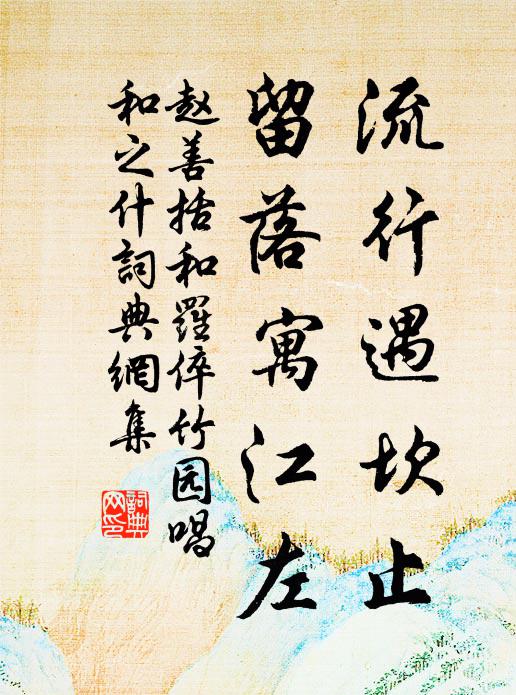 流行遇坎止
留落寓江左
赵善括和羅倅竹园唱
和之什詞典網集
詞典网印